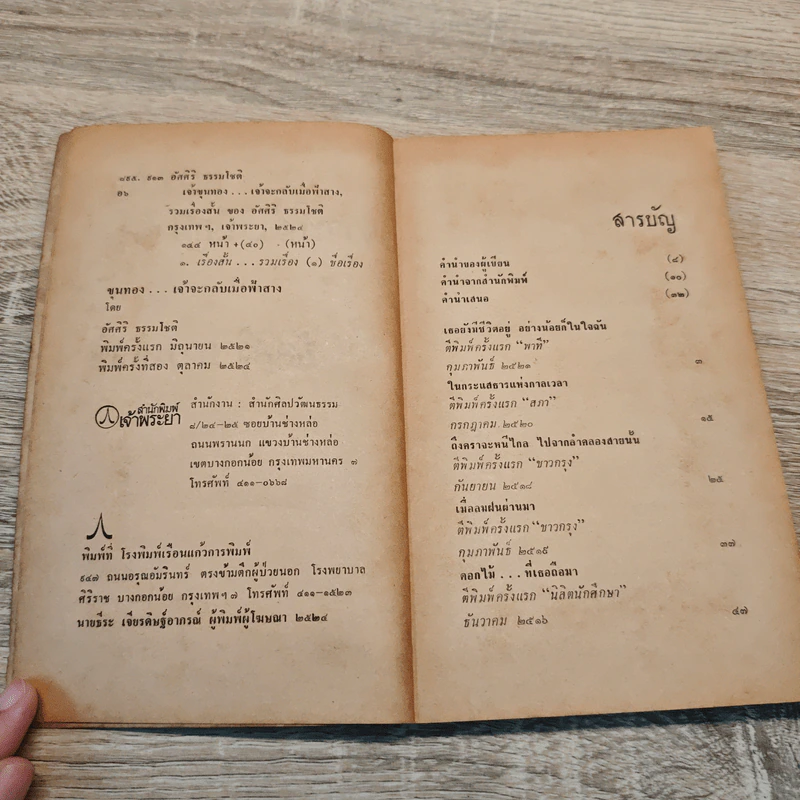 ๘๙๕. ๙๑๓ อัศศิริ ธรรมโชติ
อ๖ เจ้าขุนทอง...เจ้าจะกลับเมื่อฟ้าสาง,
รวมเรื่องสั้น ของ อัศศิริ ธรรมโชติ
กรุงเทพฯ, เจ้าพระยา, ๒๕๒๔
๑๔๔ หน้า +(๔๐) (หน้า)
๑. เรื่องสั้น...รวมเรื่อง (๑) ชื่อเรื่อง
ขุนทอง...เจ้าจะกลับเมื่อฟ้าสาง
โดย
อัศศิริ ธรรมโชติ
พิมพ์ครั้งแรก มิถุนายน ๒๕๒๑
พิมพ์ครั้งที่สอง ตุลาคม ๒๕๒๔
สำนักพิมพ์
เจ้าพระยา
สำนักงาน : สำนักศิลปวัฒนธรรม
๘/๒๔-๒๕ ซอยบ้านช่างหล่อ
ถนนพรานนก แขวงบ้านช่างหล่อ
เขตบางกอกน้อย กรุงเทพมหานคร ๗
โทรศัพท์ ๔๑๑-๐๖๖๘
พิมพ์ที่ โรงพิมพ์เรือนแก้วการพิมพ์
๙๔๗ ถนนอรุณอัมรินทร์ ตรงข้ามตึกผู้ป่วยนอก โรงพยาบาล
ศิริราช บางกอกน้อย กรุงเทพฯ ๗ โทรศัพท์ ๔๑๑-๑๕๒๓
นายธีระ เจียรดิษฐ์อาภรณ์ ผู้พิมพ์ผู้โฆษณา ๒๕๒๔
สารบัญ
คำนำของผู้เขียน (๘)
คำนำจากสำนักพิมพ์ (๑๐)
คำนำเสนอ (๓๒)
เธอยังมีชีวิตอยู่ อย่างน้อยก็ในใจฉัน
ตีพิมพ์ครั้งแรก "พาที"
กุมภาพันธ์ ๒๕๒๑ ๓
ในกระแสธารแห่งกาลเวลา
ตีพิมพ์ครั้งแรก "สภา"
กรกฎาคม ๒๕๒๐ ๑๕
ถึงคราจะหนีไกล ไปจากลำคลองสายนั้น
ตีพิมพ์ครั้งแรก "ชาวกรุง"
กันยายน ๒๕๑๘ ๒๕
เมื่อลมฝนผ่านมา
ตีพิมพ์ครั้งแรก "ชาวกรุง"
กุมภาพันธ์ ๒๕๑๙ ๓๗
ดอกไม้...ที่เธอถือมา
ตีพิมพ์ครั้งแรก "นิสิตนักศึกษา"
ธันวาคม ๒๕๑๖ ๔๗